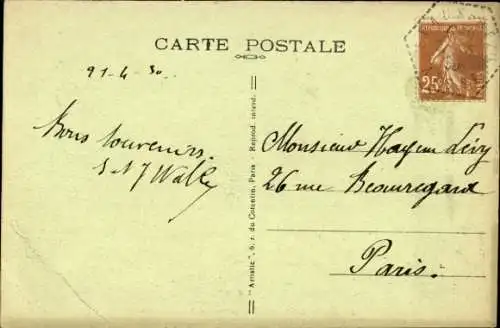 CARTE POSTALE
21-4-30
Bons souvenirs
"Artistic", 6, r. du Cotentin, Paris - Reprod. interd.
25c
Monsieur Hayem Lévy
26 rue Beauregard
Paris.